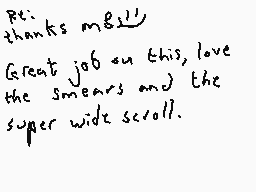 Pt:
thanks m8s!!
Great job on this, love
the smears and the
super wide scroll.